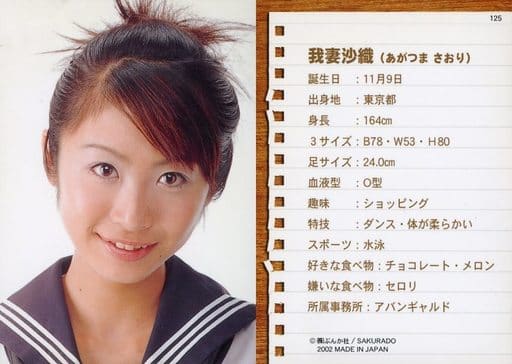 125
我妻沙織（あがつま さおり）
誕生日　：11月9日
出身地　：東京都
身長　：164㎝
３サイズ：B78・W53・H80
足サイズ：24.0㎝
血液型　：O型
趣味　：ショッピング
特技　：ダンス・体が柔らかい
スポーツ：水泳
好きな食べ物：チョコレート・メロン
嫌いな食べ物：セロリ
所属事務所：アバンギャルド
©㈱ぶんか社 / SAKURADO
2002 MADE IN JAPAN